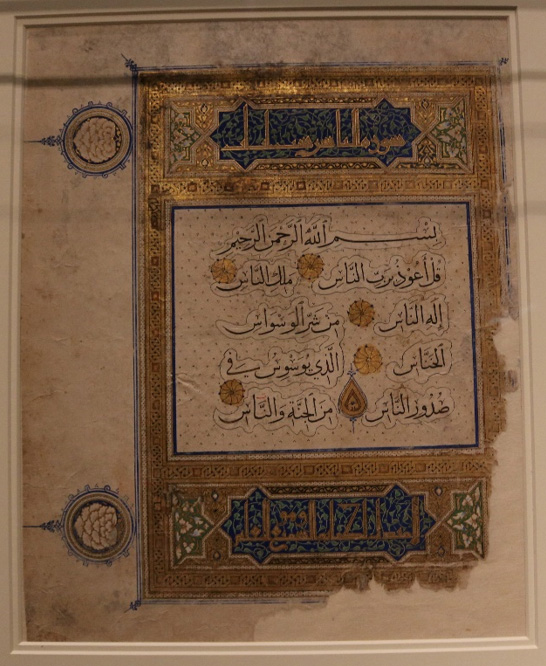 سورة الناس
بسم الله الرحمن الرحيم
قل أعوذ برب الناس ملك الناس
إله الناس من شر الوسواس
الخناس الذي يوسوس في
صدور الناس من الجنة والناس